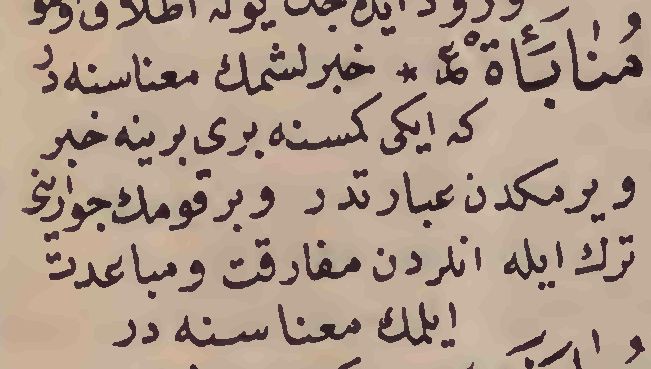 ورود ایدیجك یوله اطلاق اولنور
مُنَابَأَة ٭ خبرلشمك معناسنه در
كه ایكی كمسنه بری برینه خبر
ویرمكدن عبارتدر وبر قومك جوارینی
ترك ایله انلردن مفارقت ومباعدت
ایلمك معناسنه در